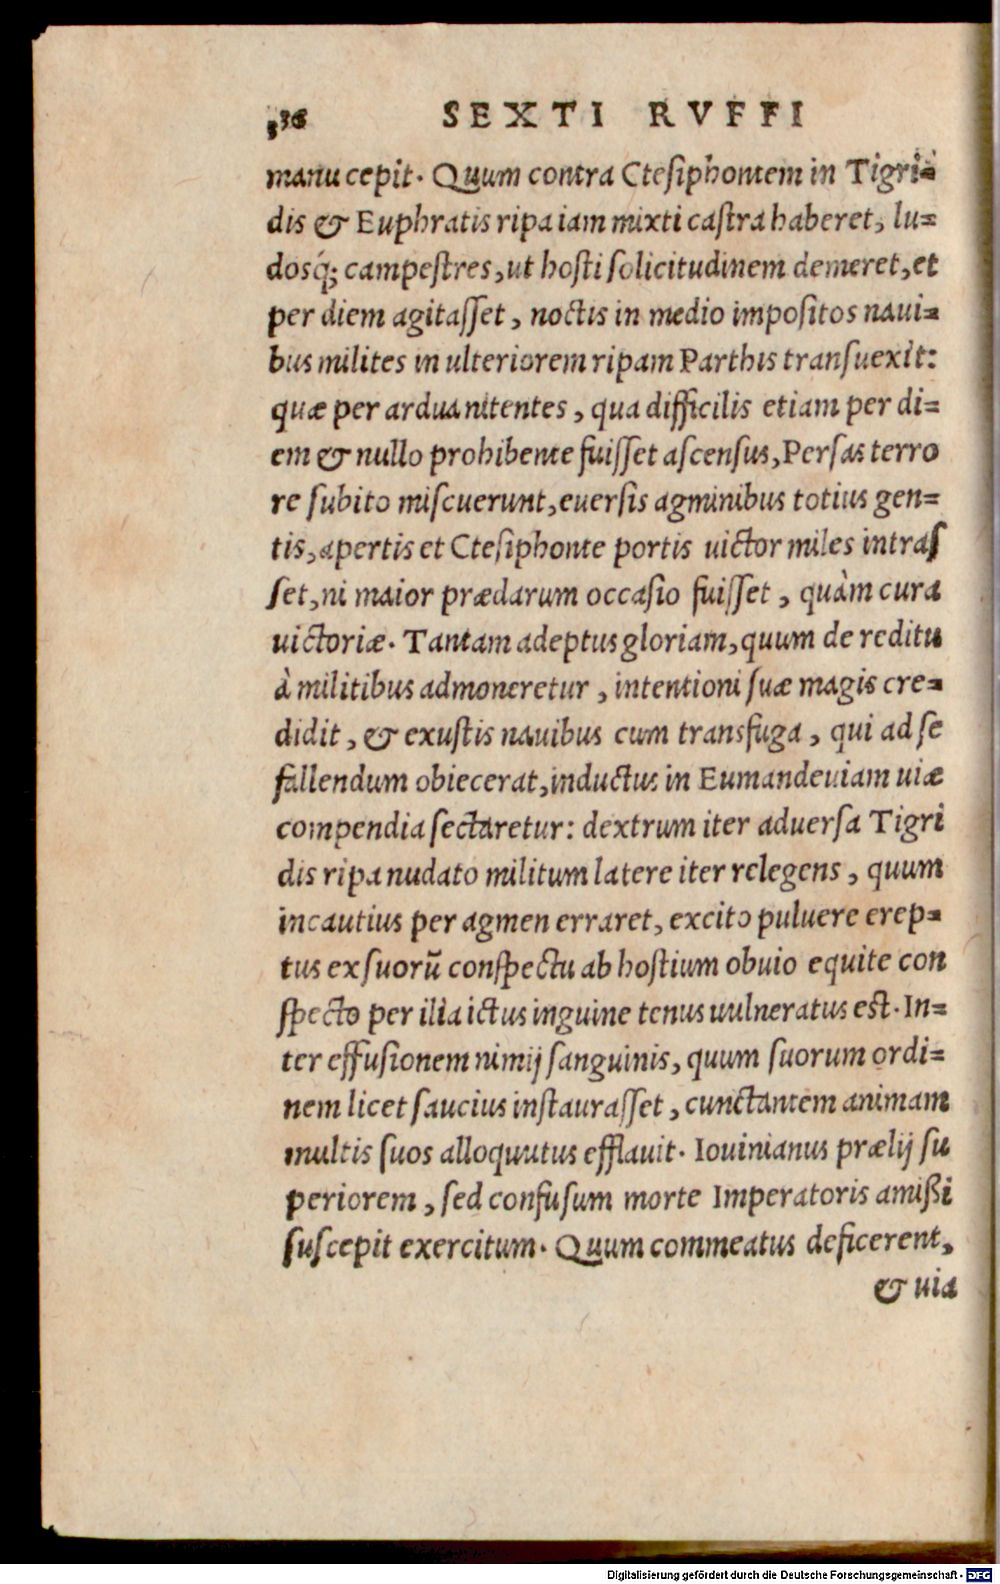 36 SEXTI RVFFI
manu cepit. Quum contra Ctesiphontem in Tigri=
dis & Euphratis ripa iam mixti castra haberet, lu=
dosq́; campestres, ut hosti solicitudinem demeret, et
per diem agitasset, noctis in medio impositos naui=
bus milites in ulteriorem ripam Parthis transuexit:
quæ per ardua nitentes, qua difficilis etiam per di=
em & nullo prohibente fuisset ascensus, Persas terro
re subito miscuerunt, euersis agminibus totius gen=
tis, apertis et Ctesiphonte portis uictor miles intras
set, ni maior prædarum occasio fuisset, quàm cura
uictoriæ. Tantam adeptus gloriam, quum de reditu
à militibus admoneretur, intentioni suæ magis cre=
didit, & exustis nauibus cum transfuga, qui ad se
fallendum obiecerat, inductus in Eumandeuiam uiæ
compendia sectaretur: dextrum iter aduersa Tigri
dis ripa nudato militum latere iter relegens, quum
incautius per agmen erraret, excito puluere erep=
tus ex suorũ conspectu ab hostium obuio equite con
specto per ilia ictus inguine tenus uulneratus est. In=
ter effusionem nimij sanguinis, quum suorum ordi=
nem licet saucius instaurasset, cunctantem animam
multis suos alloquutus efflauit. Iouinianus prælij su
periorem, sed confusum morte Imperatoris amißi
suscepit exercitum. Quum commeatus deficerent,
& uia
Digitalisierung gefördert durch die Deutsche Forschungsgemeinschaft - DFG